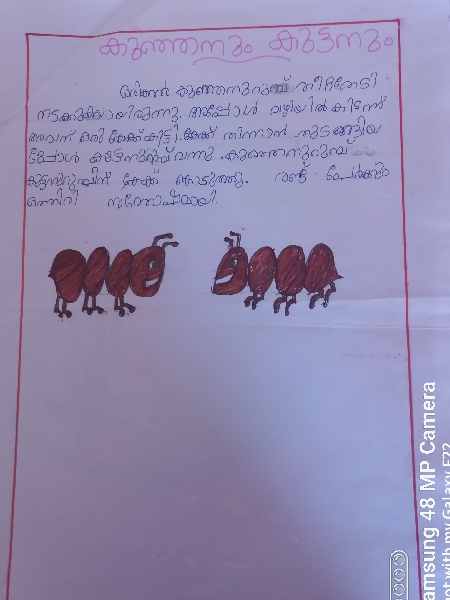 കുഞ്ഞനും കുട്ടനും
ഒരിക്കൽ കുഞ്ഞനുറുമ്പ് തീറ്റതേടി
നടക്കുകയായിരുന്നു. അപ്പോൾ വഴിയിൽ കിടന്ന്
അവന് ഒരു കേക്ക് കിട്ടി. കേക്ക് തിന്നാൻ തുടങ്ങിയ
പ്പോൾ കുട്ടനുറുമ്പ് വന്നു. കുഞ്ഞനുറുമ്പ്
കുട്ടനുറുമ്പിന് കേക്ക് കൊടുത്തു. രണ്ട് പേർക്കും
ഒത്തിരി സന്തോഷമായി.
amsung 48 MP Camera
ot with my Galaxy F22